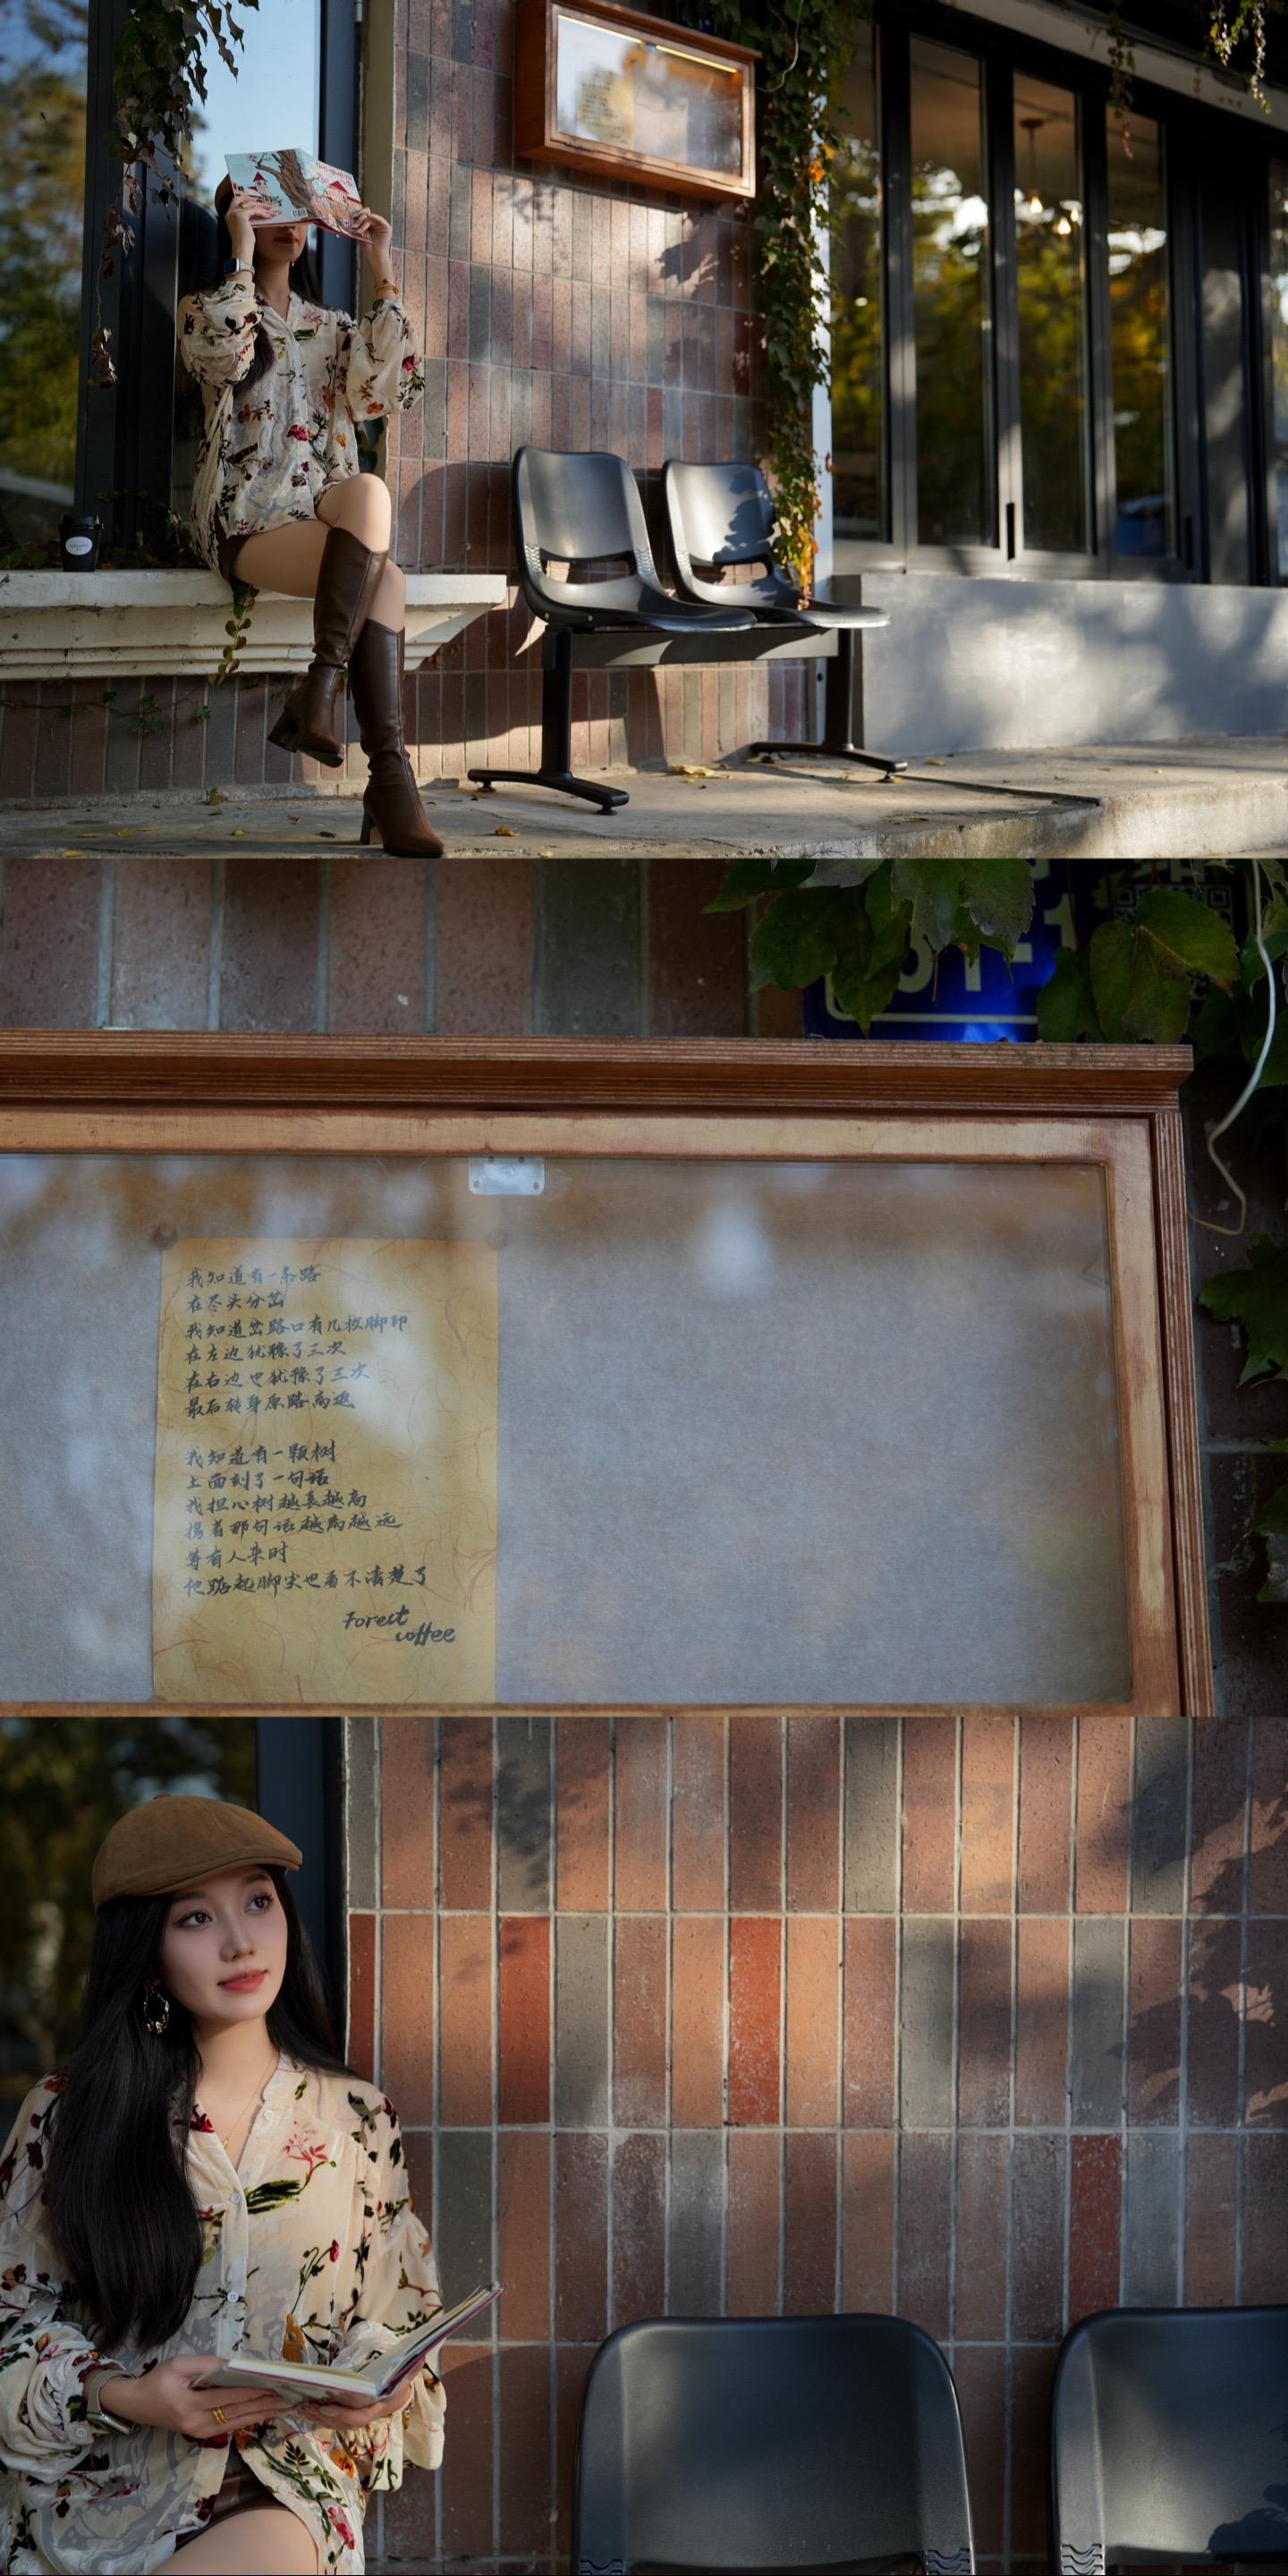 我知道有一条路
在尽头分岔
我知道岔路口有几枚脚印
在左边犹豫了三次
在右边也犹豫了三次
最后转身原路离返
我知道有一颗树
上面刻了一句话
我担心树越长越高
携着那句话越离越远
等有人来时
他踮起脚尖也看不清楚了
Forest
coffee